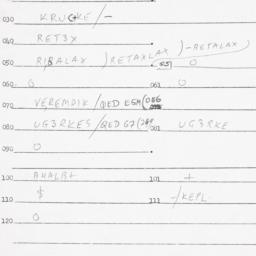 030 KRUCKE/-
040 RET3X
050 RIBALAX )RETAXLAX )-RETALAX
051 0
060 0 061 0
070 VEREMDIK/QED KSM(
080 UG3RKES/QED G7( 081 UG3RKE
090 0
100 AHALB+ 101 +
110 $ 111 -/KEPL
120 0